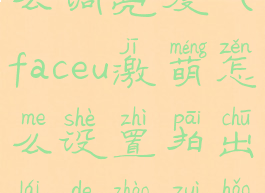 么调亮度（
jī méng zěn
faceu激萌怎
me shè zhì pāi chū
么设置拍出
de